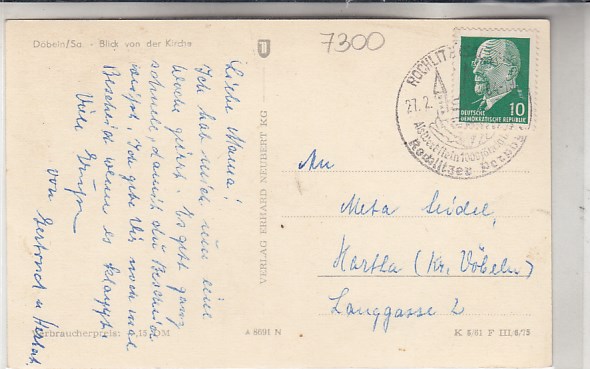 Döbeln/Sa. - Blick von der Kirche
7300
Liebe Mama!
Ich hab mich um eine
Woche geirrt. Es geht ganz
schnell, damit du Bescheid
weißt. Ich gebe Dir noch mal
Bescheid wenn es klappt.
Viele Grüße
von Gertrud u. Herbert
VERLAG ERHARD NEUBERT KG
ROCHLITZ
27.2.
Rochlitzer Porphyr
DEUTSCHE
DEMOKRATISCHE REPUBLIK
10
An
Meta Seidel,
Hartha (Kr. Döbeln)
Langgasse 2
Verbraucherpreis: 0,15 DM
A 8691 N
K 6/61 F III/6/75